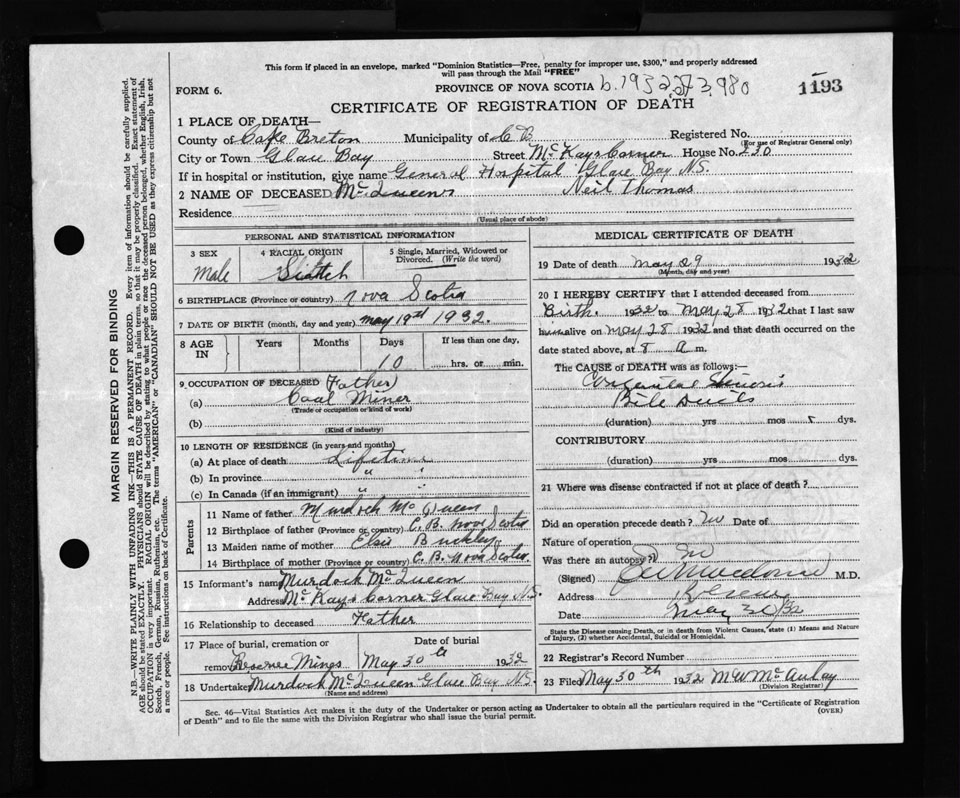 This form if placed in an envelope, marked "Dominion Statistics—Free, penalty for improper use, $300," and properly addressed
will pass through the Mail "FREE"
FORM 6.
PROVINCE OF NOVA SCOTIA b.1932
1193
CERTIFICATE OF REGISTRATION OF DEATH
1 PLACE OF DEATH—
County of Cape Breton Municipality of C B Registered No.
(For use of Registrar General only)
City or Town Glace Bay Street McKays Corner House No. 230
If in hospital or institution, give name General Hospital Glace Bay N.S.
2 NAME OF DECEASED McQueen Neil Thomas
Residence
(Usual place of abode)
PERSONAL AND STATISTICAL INFORMATION
3 SEX
Male
4 RACIAL ORIGIN
Scotch
5 Single, Married, Widowed or Divorced. (Write the word)
6 BIRTHPLACE (Province or country) Nova Scotia
7 DATE OF BIRTH (month, day and year) May 19th 1932.
8 AGE IN Years Months Days If less than one day,
10 hrs. or min.
9 OCCUPATION OF DECEASED (Father)
(a) Coal Miner
(Trade or occupation or kind of work)
(b)
(Kind of industry)
10 LENGTH OF RESIDENCE (in years and months)
(a) At place of death Lifetime
(b) In province " "
(c) In Canada (if an immigrant) " "
Parents
11 Name of father Murdoch McQueen
12 Birthplace of father (Province or country) C.B. Nova Scotia
13 Maiden name of mother Elsie Buckley
14 Birthplace of mother (Province or country) C.B. Nova Scotia.
15 Informant's name Murdock McQueen
Address McKays Corner Glace Bay N.S.
16 Relationship to deceased Father
17 Place of burial, cremation or Date of burial
removal Reserve Mines May 30th 1932
18 Undertaker Murdock McQueen Glace Bay N.S.
(Name and address)
MEDICAL CERTIFICATE OF DEATH
19 Date of death May 29 1932
(Month, day and year)
20 I HEREBY CERTIFY that I attended deceased from
Birth. 1932 to May 28 1932 that I last saw
him alive on May 28 1932 and that death occurred on the
date stated above, at 8 a m.
The CAUSE of DEATH was as follows:—
Congenital Stenosis
Bile Ducts
(duration) yrs mos dys.
CONTRIBUTORY
(duration) yrs mos dys.
21 Where was disease contracted if not at place of death?
Did an operation precede death? No Date of
Nature of operation
Was there an autopsy? No
(Signed) M.D.
Address Reserve
Date May 31/32
State the Disease causing Death, or in death from Violent Causes, state (1) Means and
Nature of Injury, (2) whether Accidental, Suicidal or Homicidal.
22 Registrar's Record Number
23 Filed May 30th 1932 M W McAulay
(Division Registrar)
Sec. 46—Vital Statistics Act makes it the duty of the Undertaker or person acting as Undertaker to obtain all the particulars required in the "Certificate of Registration
of Death" and to file the same with the Division Registrar who shall issue the burial permit.
(OVER)
MARGIN RESERVED FOR BINDING
N.B.—WRITE PLAINLY WITH UNFADING INK—THIS IS A PERMANENT RECORD. Every item of information should be carefully supplied.
AGE should be stated EXACTLY. PHYSICIANS should STATE CAUSE OF DEATH in plain terms, so that it may be properly classified. Exact statement of
OCCUPATION is very important. RACIAL ORIGIN will be described by stating to what people or race the deceased person belonged, whether English, Irish,
Scotch, French, German, Russian, Ruthenian, etc. The terms "AMERICAN" or "CANADIAN" SHOULD NOT BE USED as they express citizenship but not
a race or people. See instructions on back of Certificate.